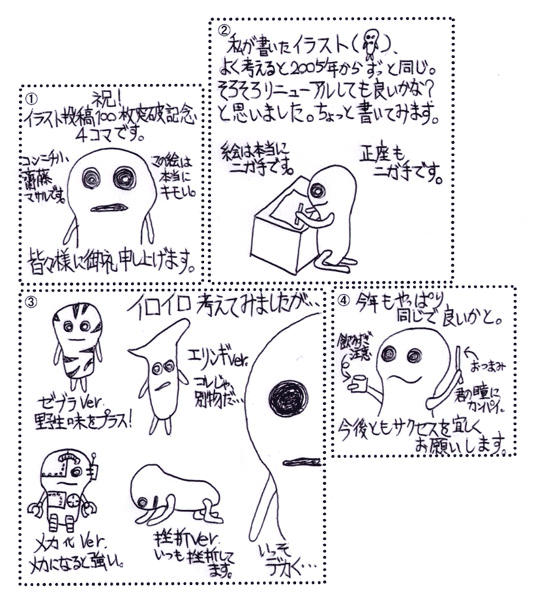 ①
祝!
イラスト投稿100枚突破記念
4コマです。
コンニチハ、
齋藤
マサルです。
この絵は
本当に
キモい。
皆々様に御礼申し上げます。
②
私が書いたイラスト( )、
よく考えると2005年からずっと同じ。
そろそろリニューアルしても良いかな?
と思いました。ちょっと書いてみます。
絵は本当に
ニガ手です。
正座も
ニガ手です。
③
イロイロ考えてみましたが、、
ゼブラver.
野生味をプラス!
エリンギver.
コレじゃ、
別物だ…
メカ化ver.
メカになると強い。
挫折ver.
いつも挫折して
ます。
いっそ
デカく…
④
今年もやっぱり
同じで良いかと。
飲みすぎ
注意
おつまみ
君の瞳に
カンパイ。
今後ともサクセスを宜しく
お願いします。